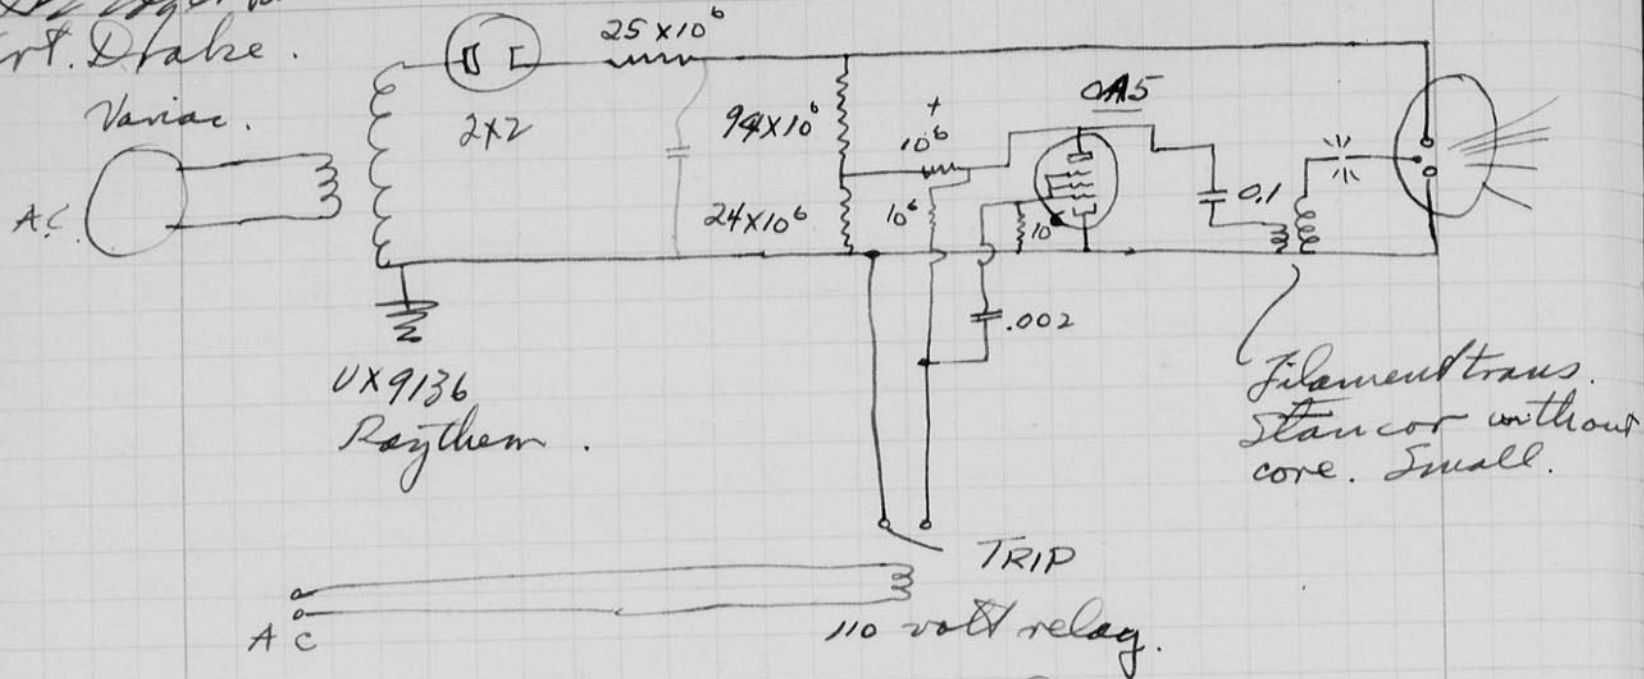 Drake.
Variac.
A.C.
2X2
25 x 10⁶
94 x 10⁶
24 x 10⁶
+
10⁶
10⁶
10
OA5
0.1
.002
UX9136
Raythem.
Filament trans.
Stancor without
core. Small.
TRIP
AC
110 volt relay.